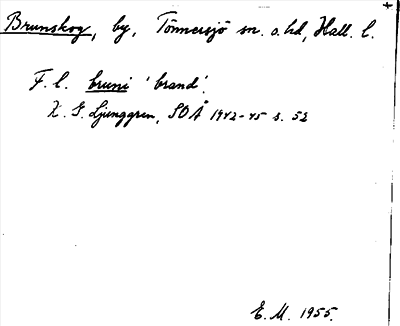 Brunskog, by, Tönnersjö sn. o. hd, Hall. l.
F. l. bruni 'brand'.
K. G. Ljunggren, SOÅ 1942-45 s. 52
E. M. 1955.